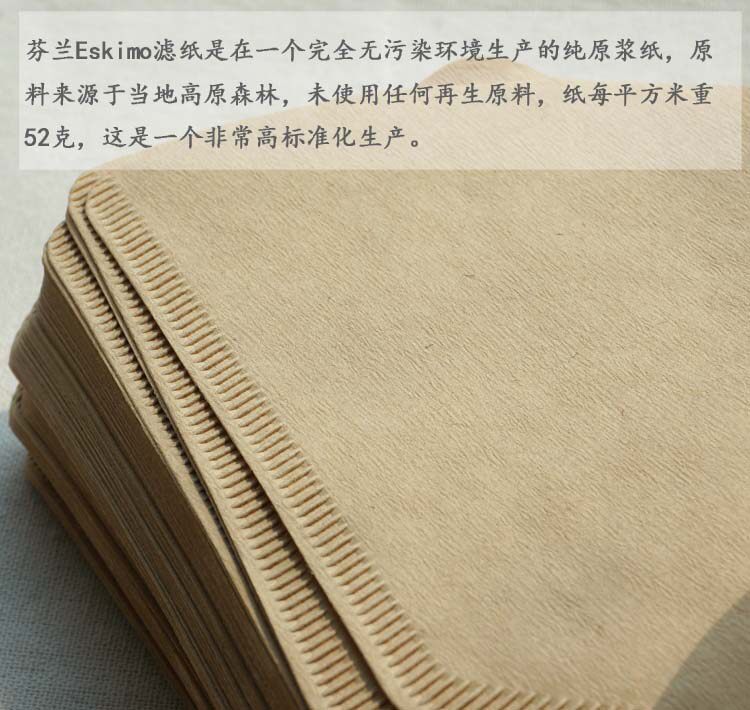 芬兰Eskimo滤纸是在一个完全无污染环境生产的纯原浆纸，原
料来源于当地高原森林，未使用任何再生原料，纸每平方米重
52克，这是一个非常高标准化生产。